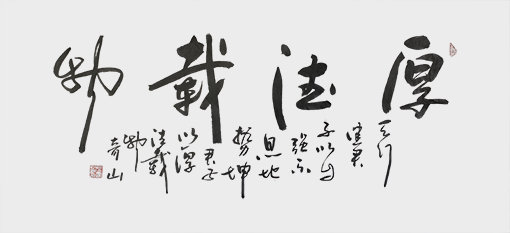 厚德载物
天行
健君
子以自
强不
息地
势坤
君子
以厚
德载
物
奇山